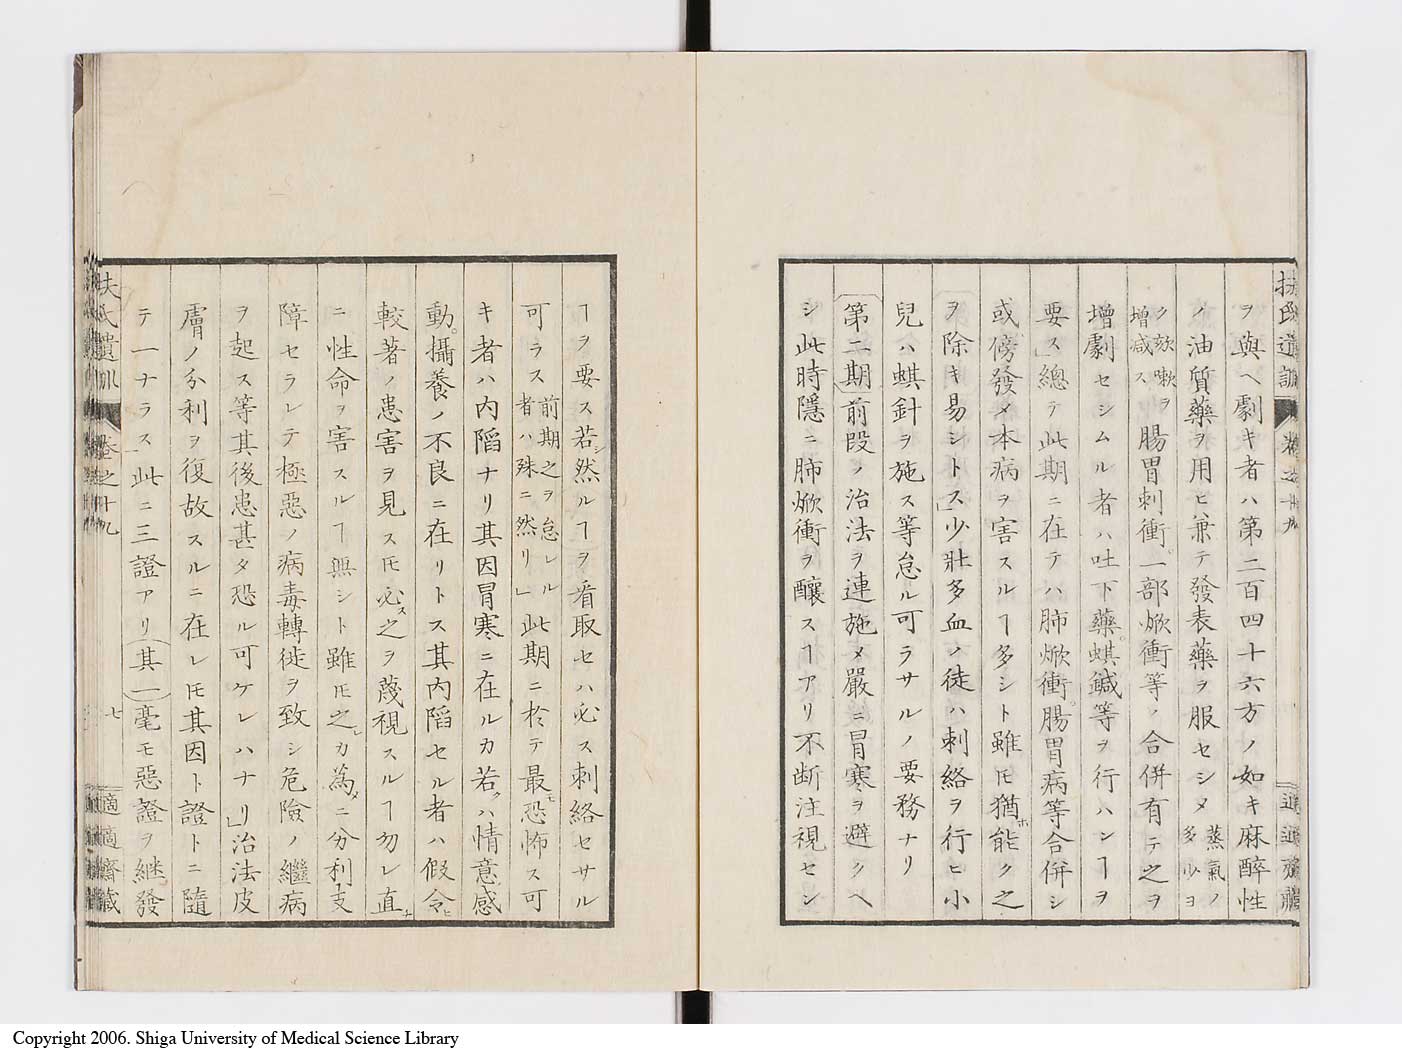 扶氏遺訓 卷之十九 適適齋藏
ヲ與ヘ劇キ者ハ第二百四十六方ノ如キ麻醉性
ノ油質藥ヲ用ヒ兼テ發表藥ヲ服セシメ蒸氣ノ多少ヨ
ク欬嗽ヲ増减ス腸胃刺衝。一部焮衝等ノ合併有テ之ヲ
増劇セシムル者ハ吐下藥。蜞鍼等ヲ行ハンヿヲ
要ス」總テ此期ニ在テハ肺焮衝。腸胃病等合併シ
或傍發メ本病ヲ害スルヿ多シト雖モ猶能ホク之
ヲ除キ易シトス」少壯多血ノ徒ハ刺絡ヲ行ヒ小
兒ハ蜞針ヲ施ス等怠ル可ラサルノ要務ナリ
第二期前段ノ治法ヲ連施メ嚴ニ冒寒ヲ避クヘ
シ此時隱ニ肺焮衝ヲ釀スヿアリ不断注視セン
ヿヲ要ス若シ然ルヿヲ看取セハ必ス刺絡セサル
可ラス前期之ヲ怠レル者ハ殊ニ然リ」此期ニ於テ最モ恐怖ス可
キ者ハ内陷ナリ其因冒寒ニ在ルカ若クハ情意感
動。攝養ノ不良ニ在リトス其内陷セル者ハ假令ヒ
較著ノ患害ヲ見スモ必ス之ヲ蔑視スルヿ勿レ直チ
ニ性命ヲ害スルヿ無シト雖モ之レカ為メニ分利支
障セラレテ極惡ノ病毒轉徙ヲ致シ危險ノ繼病
ヲ起ス等其後患甚タ恐ル可ケレハナリ」治法皮
膚ノ分利ヲ復故スルニ在レモ其因ト證トニ隨
テ一ナラス此ニ三證アリ其一毫モ惡證ヲ継發
扶氏遺訓 卷之十九 七 適適齋藏
Copyright 2006. Shiga University of Medical Science Library